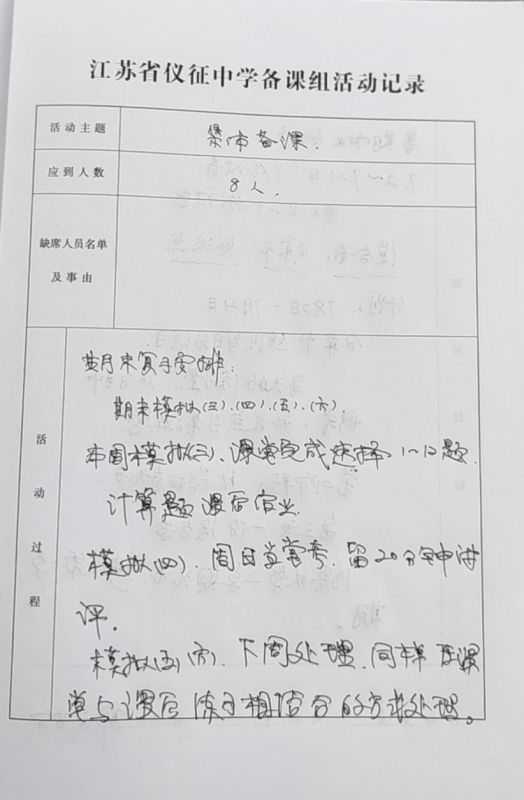 江苏省仪征中学备课组活动记录
活动主题
集体备课.
应到人数
8人.
缺席人员名单
及事由
活动过程
期末复习安排:
期末模拟(三).(四).(五).(六).
本周模拟(三).课堂完成选择1~12题.
计算题课后完业.
模拟(四).周日当堂考.留20分钟讲
评.
模拟(五)(六).下周处理.同样 课
堂与课后练习相结合的方式处理。